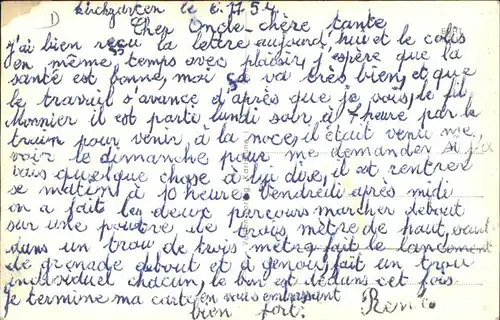 D
Kirchzarten le 6.11 54
Cher Oncle - chère tante
J'ai bien reçu la lettre aujourd'hui et le colis
en même temps avec plaisir, j'espère que la
santé est bonne, moi ça va très bien, et que
le travail s'avance d'après que je vois, le fil
Monnier il est parte lundi soir à 7 heure par le
train pour venir à la noce, il était venu me
voir le dimanche pour me demander si j'
vais quelque chose à lui dire, il est rentrer
se matin à 10 heure. Vendredi après midi
on a fait les deux parcours marcher debout
sur une poutre de trois mètre de haut, saut
dans un trou de trois mètre fait le lancement
de grenade debout et à genou, fait un trou
individuel chacun, le bon est dedans cet fois
Je termine ma carte en vous embrassant
bien fort. René.